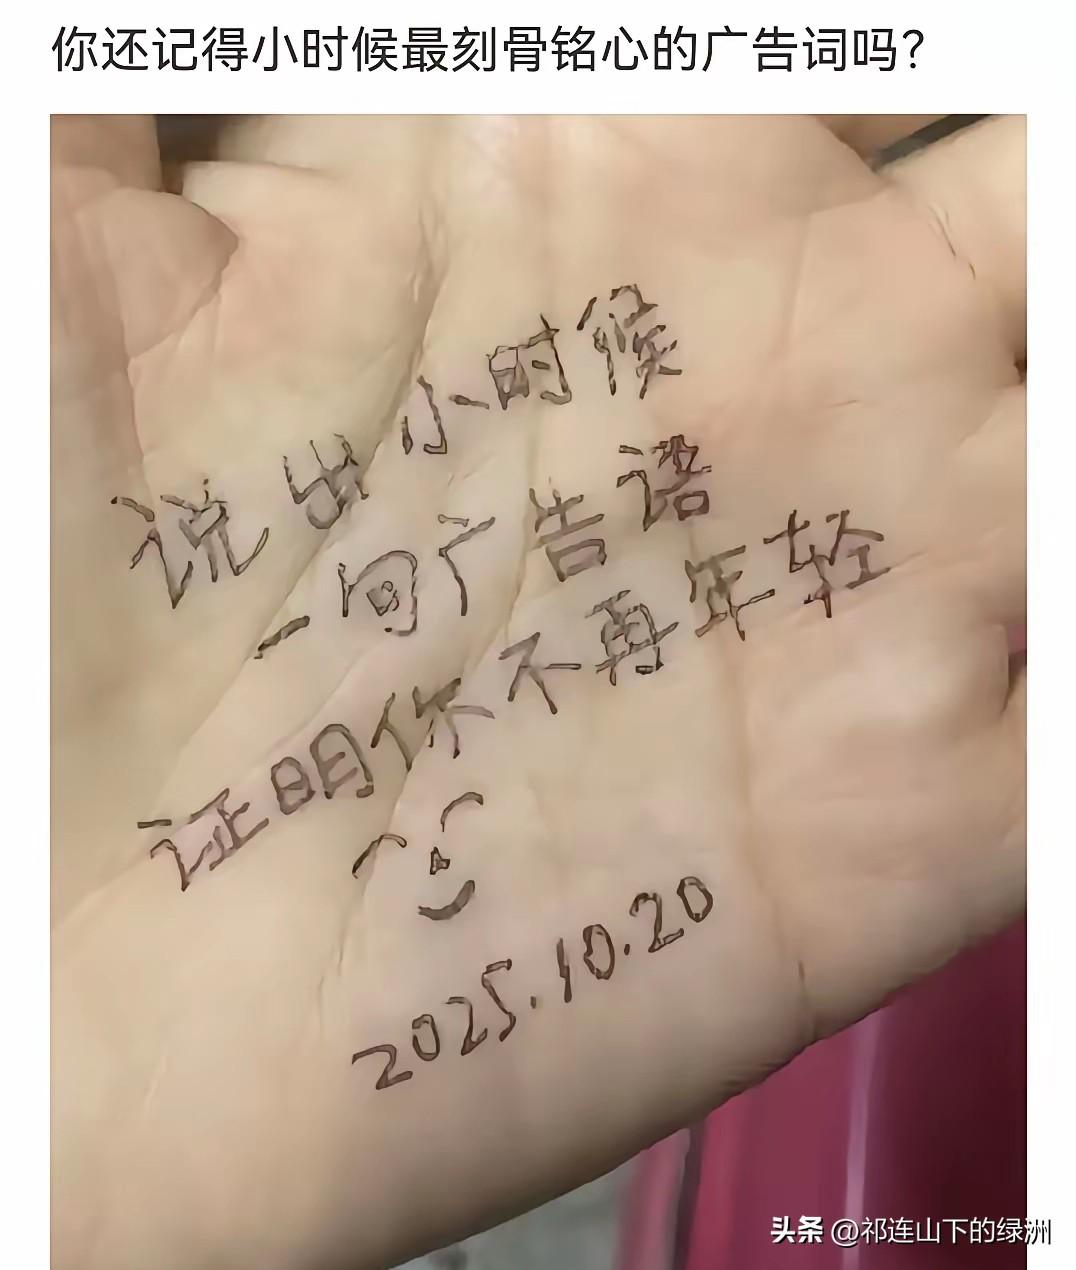 你还记得小时候最刻骨铭心的广告词吗？
说出小时候
一句广告语
证明你不再年轻
2025.10.20
头条 @祁连山下的绿洲